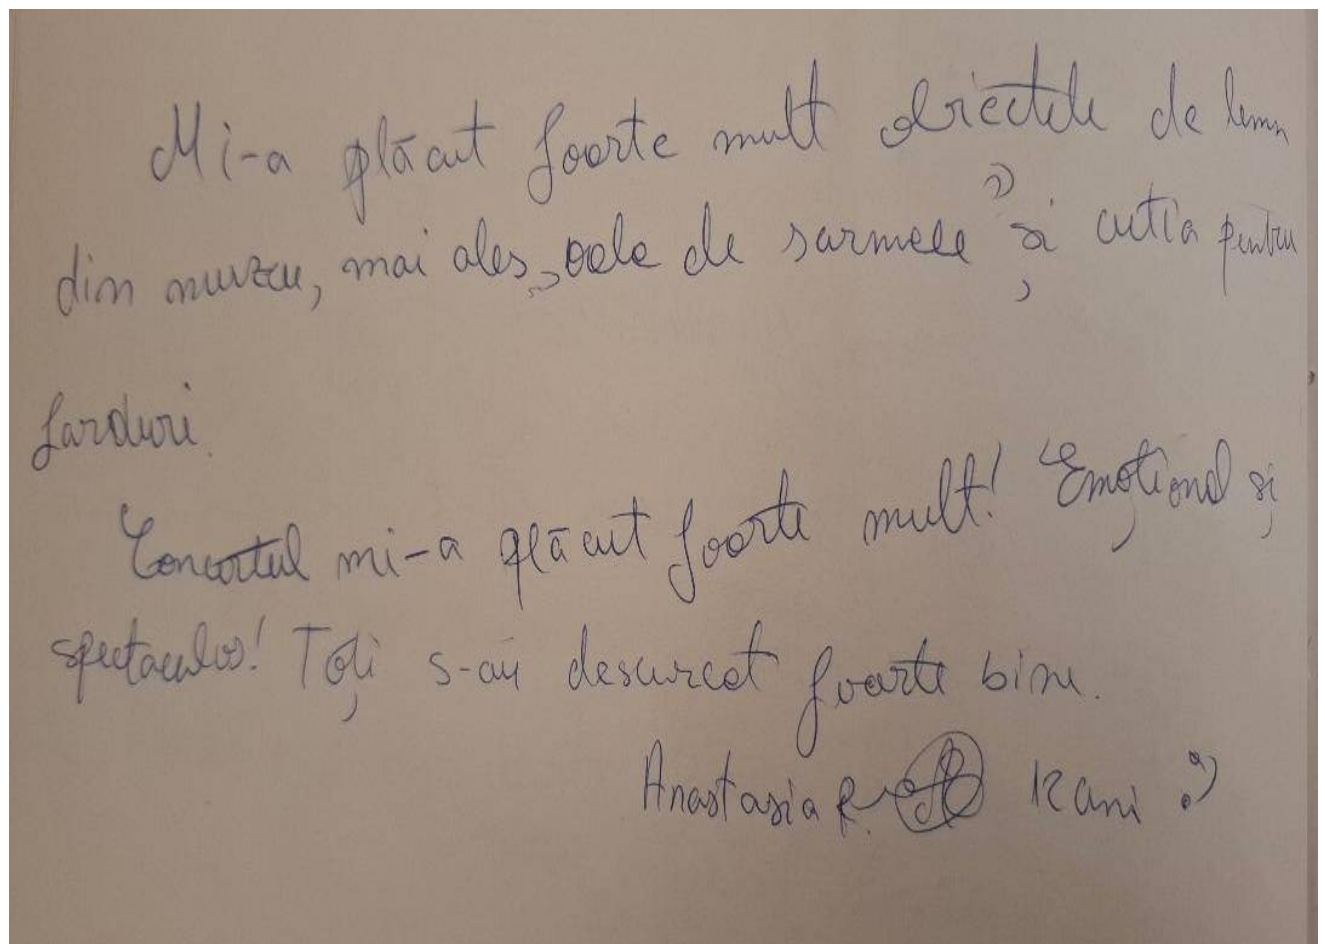 Mi-a plăcut foarte mult obiectele de lemn
din muzeu, mai ales „oala de sarmale” și cutia pentru
farduri.
Concertul mi-a plăcut foarte mult! Emoțional și
spectaculos! Toți s-au descurcat foarte bine.
Anastasia R. 12 ani :)